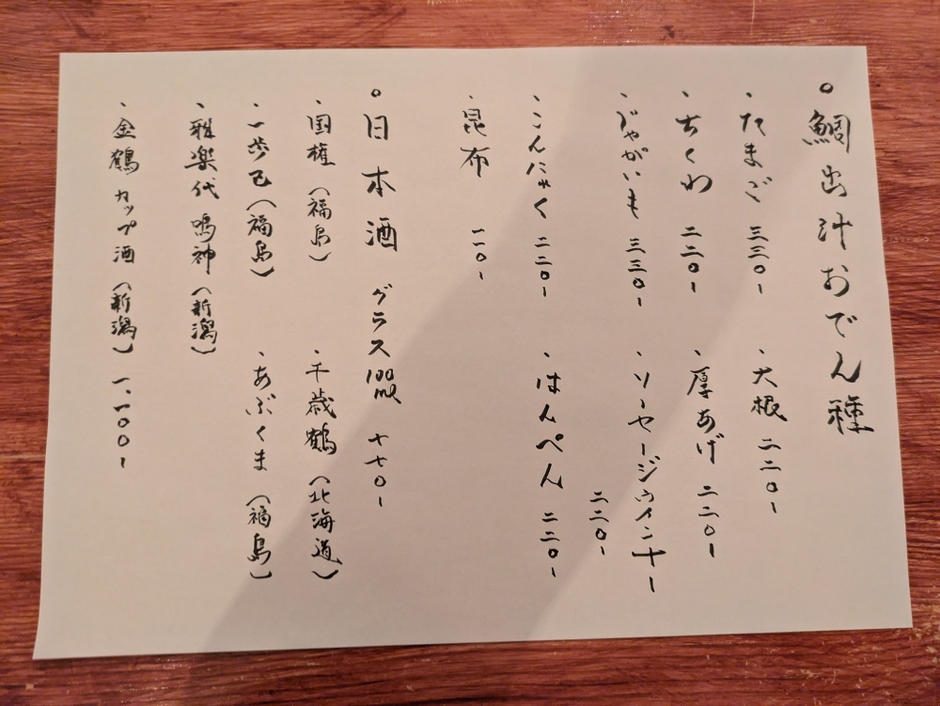 ○鯛出汁おでん種
・たまご 三三〇-
・大根 二二〇-
・ちくわ 二二〇-
・厚あげ 二二〇-
・じゃがいも 三三〇-
・ソーセージウインナー 二二〇-
・こんにゃく 二二〇-
・はんぺん 二二〇-
・昆布 一一〇-
○日本酒 グラス100ml 七七〇-
・国権(福島)
・千歳鶴(北海道)
・一歩己(福島)
・あぶくま(福島)
・雅楽代 鳴神(新潟)
・金鶴カップ酒(新潟)一、一〇〇-